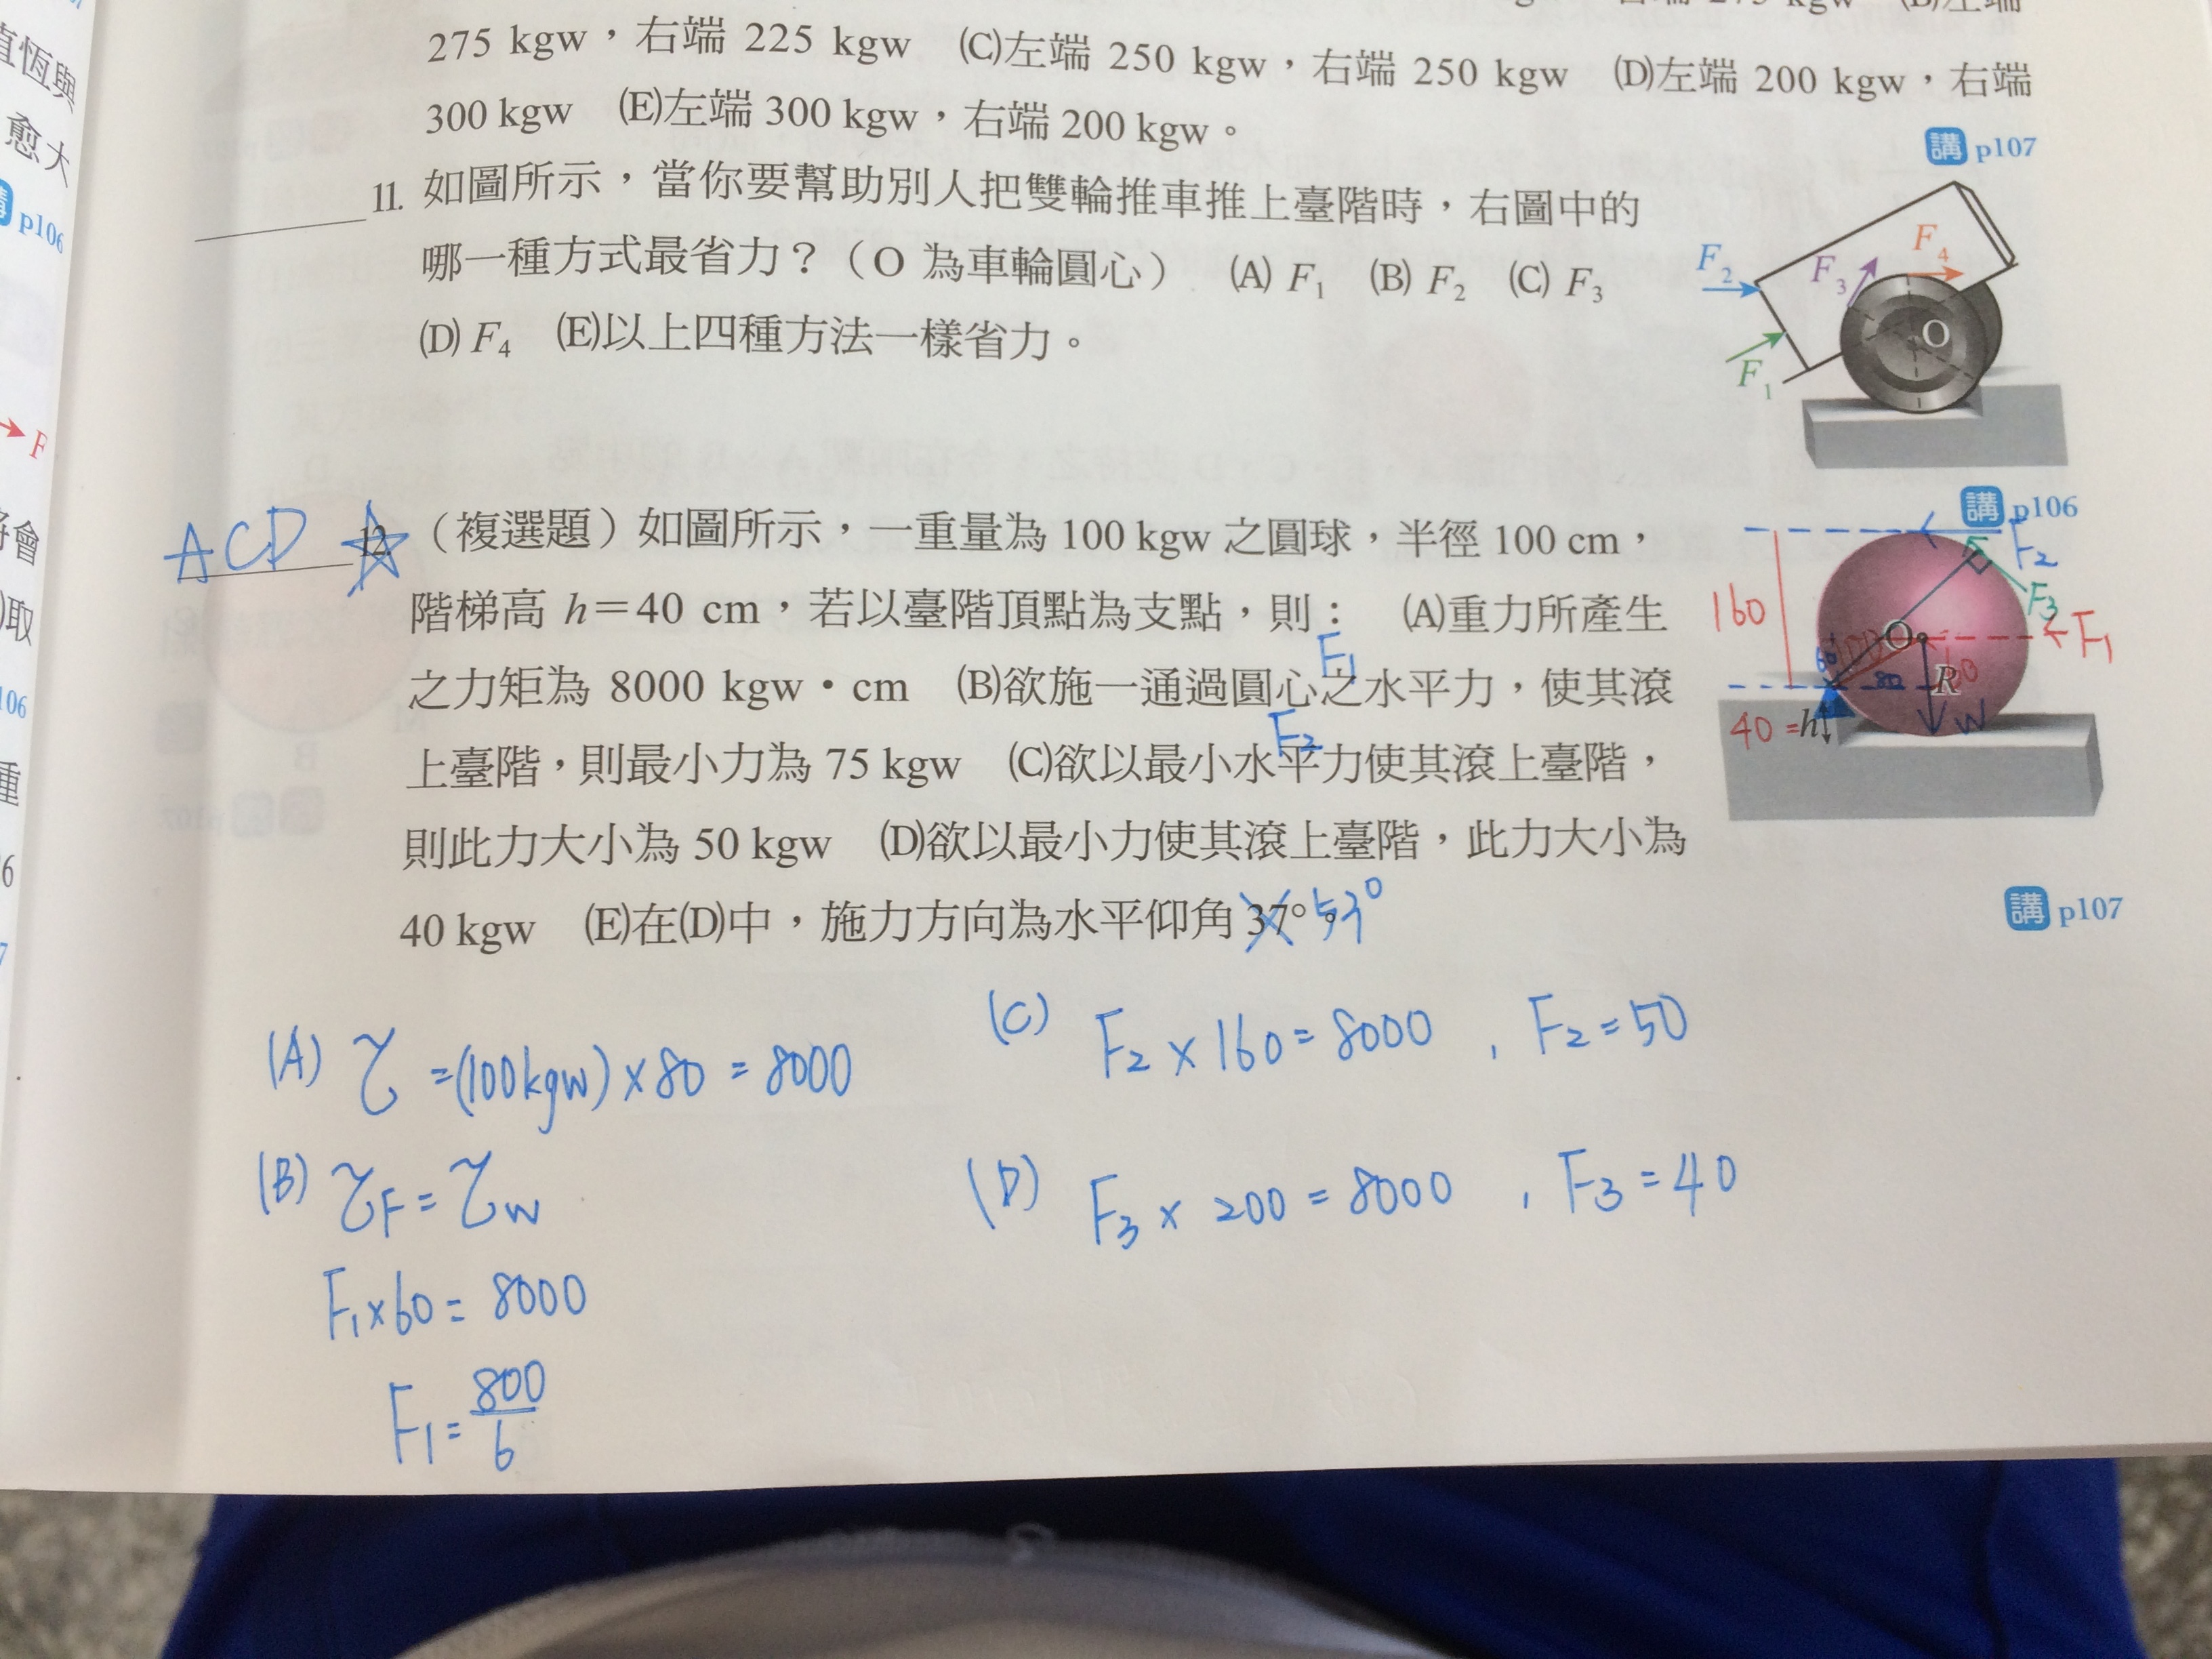 直恆與
愈大
講 p106
F
將會
取
106
重
6
275 kgw，右端 225 kgw (C)左端 250 kgw，右端 250 kgw (D)左端 200 kgw，右端
300 kgw (E)左端 300 kgw，右端 200 kgw。
講 p107
11. 如圖所示，當你要幫助別人把雙輪推車推上臺階時，右圖中的
哪一種方式最省力？（O 為車輪圓心） (A) F₁ (B) F₂ (C) F₃
(D) F₄ (E)以上四種方法一樣省力。
F₂
F₃
F₄
O
F₁
講 p106
ACD ☆ 12. （複選題）如圖所示，一重量為 100 kgw 之圓球，半徑 100 cm，
階梯高 h＝40 cm，若以臺階頂點為支點，則： (A)重力所產生
F₁
之力矩為 8000 kgw·cm (B)欲施一通過圓心之水平力，使其滾
F₂
上臺階，則最小力為 75 kgw (C)欲以最小水平力使其滾上臺階，
則此力大小為 50 kgw (D)欲以最小力使其滾上臺階，此力大小為
40 kgw (E)在(D)中，施力方向為水平仰角 37°。 53°
F₂
F₃
160
O
F₁
80
R
40 = h
W
講 p107
(A) τ = (100kgw) × 80 = 8000
(B) τF = τW
F₁ × 60 = 8000
F₁ = 800/6
(C) F₂ × 160 = 8000 , F₂ = 50
(D) F₃ × 200 = 8000 , F₃ = 40